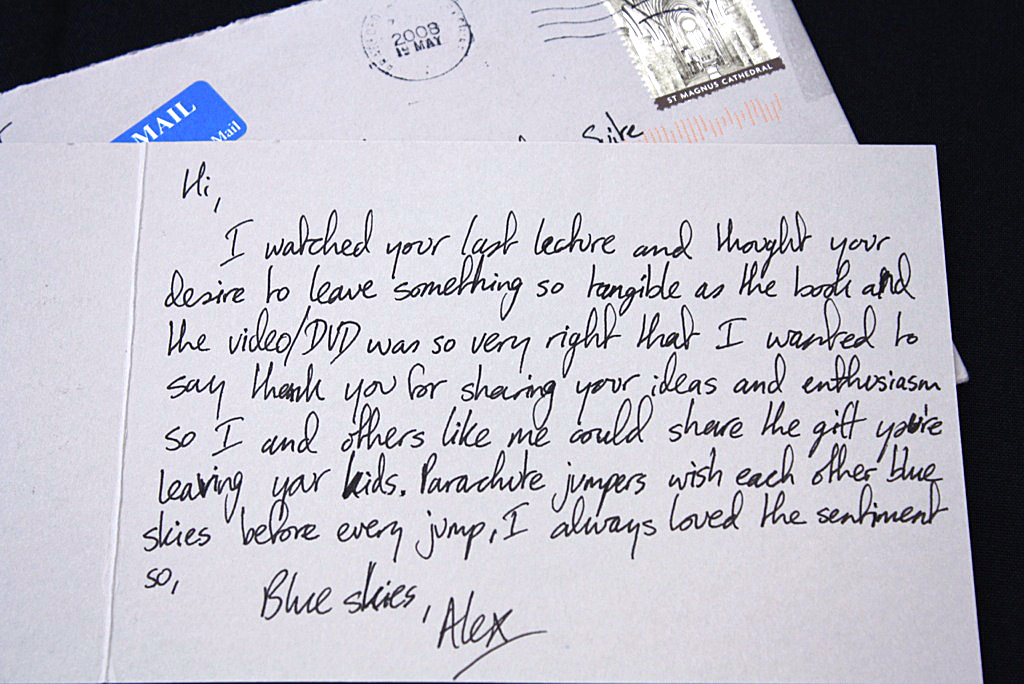 2008
19 MAY
ST MAGNUS CATHEDRAL
MAIL
Mail
Suite
Hi,
I watched your last lecture and thought your
desire to leave something so tangible as the book and
the video/DVD was so very right that I wanted to
say thank you for sharing your ideas and enthusiasm
so I and others like me could share the gift you're
leaving your kids. Parachute jumpers wish each other blue
skies before every jump, I always loved the sentiment
so,
Blue skies,
Alex